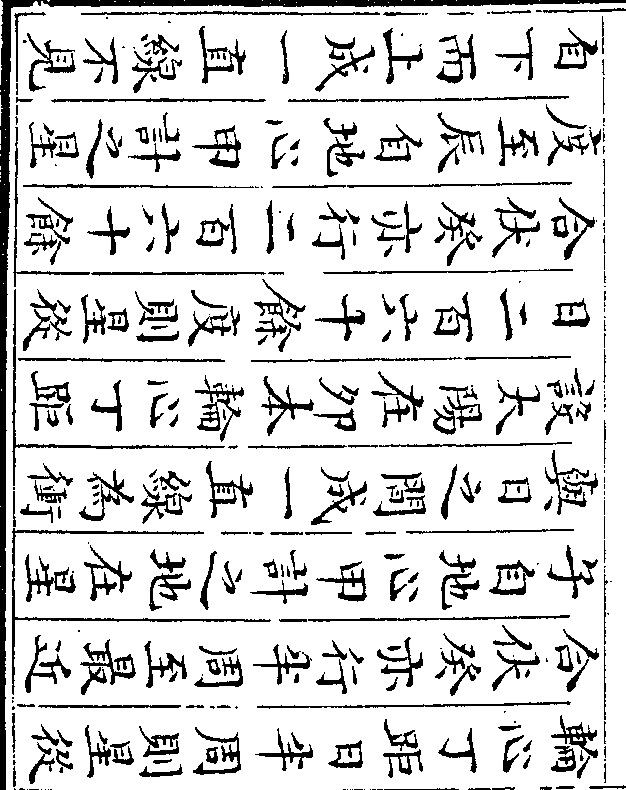 輪心丁距日半周則星從
合伏癸亦行半周至最近
子自地心甲計之地在星
與日之間成一直線為衝
設太陽在卯本輪心丁距
日二百六十餘度則星從
合伏癸亦行二百六十餘
度至辰自地心甲計之星
自下而上成一直線不見